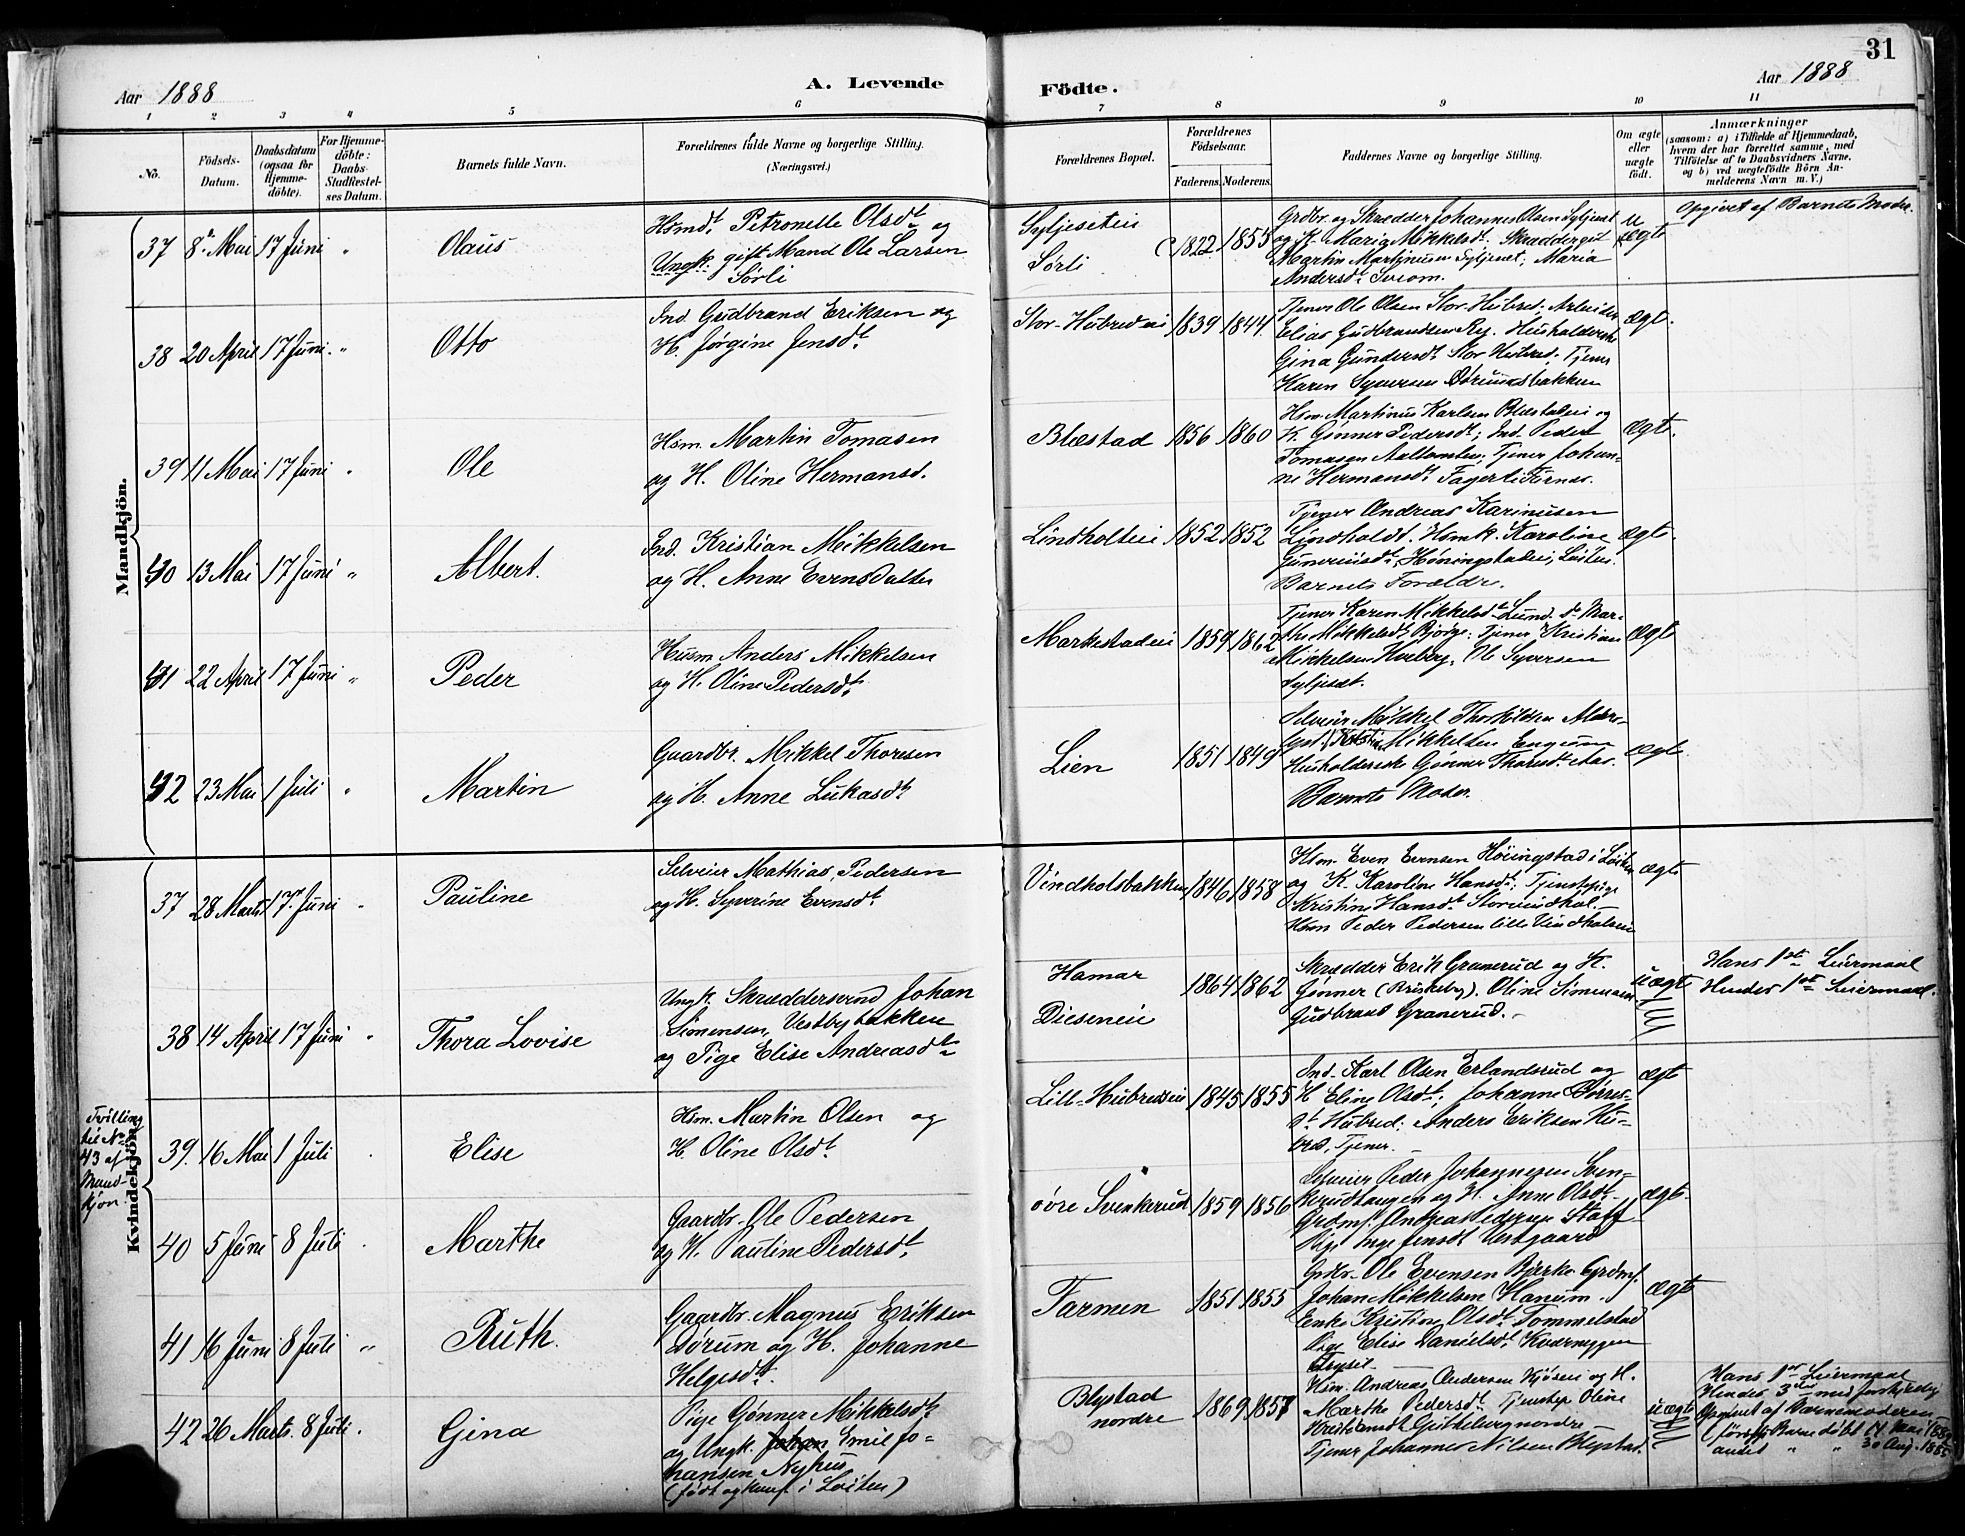 31
Aar 1888
A. Levende
Födte.
Aar 1888
1 2 3 4 5 6 7 8 9 10 11
No.
Födsels-
Datum.
Daabsdatum
(ogsaa for
Hjemme-
döbte).
For Hjemme-
döbte:
Daabs-
Stadfæstel-
ses Datum.
Barnets fulde Navn.
Forældrenes fulde Navne og borgerlige Stilling.
(Næringsvei.)
Forældrenes Bopæl.
Forældrenes
Födselsaar.
Faderens. Moderens.
Faddernes Navne og borgerlige Stilling.
Om ægte
eller
uægte
födt.
Anmærkninger
(saasom: a) i Tilfælde af Hjemmedaab,
hvem der har forrettet samme, med
Tilföielse af to Daabsvidners Navne,
og b) ved uægtefödte Börn An-
melderens Navn m. V.)
Mandkjön.
37 8de Mai 17 Juni "
Olaus
Hsmdt. Petronelle Olsdt og
Ungk. gift Mand Ole Larsen
Sørli
Syljeseteie
Sørli
C 1822 1855
Grdbr. og Skrædder Johannes Olsen Syljeset
og K. Maria Mikkelsdt.
Martin Martinusen Syljeset, Maria
Andersdt.
uægte
Opgivet af Barnets Moder.
38 20 April 17 Juni "
Otto
Ind. Gudbrand Eriksen og
H. Jørgine Jensdt.
Stor-Hubredei
1839 1844
Tjener Ole Olsen Stor Hubred. Arbeider
Elias Gudbrandsen Ry. Husholderske
Gina Gundersdt. Stor Hubred. Tjener
Karen Syversen Dørumsbakken
ægte.
39 11 Mai 17 Juni "
Ole
Hsm. Martin Tomasen
og H. Oline Hermansd.
Blæstad
1856 1860
Hsm. Martinus Karlsen Blæstadeie og
K. Gønner Pedersdt; Ind. Peder
Tomasen; Tjener Johan-
ne Hermansdt
ægte.
40 13 Mai 17 Juni "
Albert.
Ind. Kristian Mikkelsen
og H. Anne Evensdatter
Lindholteie
1852 1852
Tjener Andreas Karinusen
Lindholdt. Hsmk. Karoline
Gunerius dt, Høningstadeie, Løiten.
Barnets Forældre.
ægte.
41 22 April 17 Juni "
Peder
Husm. Anders Mikkelsen
og H. Oline Pedersdt.
Markestadeie
1859 1862
Tjener Karen Mikkelsdt Lund. do Mar-
the Mikkelsdt Bjørge. Tjener Kristian
Mikkelsen Hveberg, Ole Syversen
Syljeset.
ægte
42 23 Mai 1 Juli "
Martin
Gaardbr. Mikkel Thoresen
og H. Anne Lukasdt.
Lien
1851 1849
Selveier Mikkel Thorkildsen
Mikkelsen Engum
Husholderske Gønner Thorsdt.
Barnets Moder.
ægte.
Kvindekjön.
37 28 Marts 17 Juni "
Pauline
Selveier Mathias Pedersen
og H. Syverine Evensdt.
Vindholsbakken
1846 1858
Hsm. Even Evensen Høiingstad i Løiten
og K. Karoline Hansdt; Tjenstepige
Kristine Hansdt. Storvindhol.
Hsm Peder Pedersen lille Vindholseie
ægte
38 14 April 17 Juni "
Thora Lovise
Ungk. Skræddersvend Johan
Simensen, Vestbybakken
og Pige Elise Andreasdt.
Hamar
Dieseneie
1864 1862
Skrædder Erik Granerud og K.
Gønner (Briskeby). Oline Simensen
Gudbrand Granerud.
uægte
Hans 1ste Leiermaal
Hendes 1ste Leiermaal.
Tvilling
til No
43 af
Mand-
kjøn.
39. 16 Mai 1 Juli
Elise
Hsm. Martin Olsen og
H. Oline Olsdt.
Lill-Hubredeie
1845 1855
Ind. Karl Olsen Erlandsrud og
H Eline Olsdt. Johanne Børres-
dt. Hubred. Anders Eriksen Hu-
bred, Tjener.
ægte
40 5 Juni 8 Juli
Marthe
Gaardbr. Ole Pedersen
og H. Pauline Pedersdt.
øvre Svenkerud
1859 1856
Selveier Peder Johannesen Sven-
kerudhaugen og H. Anne Olsdt.
Grdmf. Andrea Pedersen
Pige Inge Jensdt Vestgaard
ægte.
41 16 Juni 8 Juli "
Ruth.
Gaardbr. Magnus Eriksen
Dørum og H. Johanne
Helgesdt.
Farmen
1851 1855
Grdbr. Ole Evensen Bjerke. Grdmf.
Johan Mikkelsen Hanum.
Enke Kristine Olsdt. Tommelstad
Pige Elise Danielsdt, Kværnæggen
Trysil
ægte
42 26 Marts. 8 Juli.
Gina
Pige Gønner Mikkelsdt.
og Ungk. Johan Emil Jo-
hansen Nyhus
(født og konf. i Løiten)
Blystad
nordre
1869 1857
Hsm. Andreas Andersen Kjøsen og H.
Marthe Pedersdt. Tjenstep. Oline
Kristiansdt Gjetleberg nordre
Tjener Johannes Nilsen Blystad.
uægte
Hans 1ste Leiermaal
Hendes 3die med forskjellig
Opgivet af Barnemoderen
(første Barn døbt 14 Mai 1882
andet " " 30 Aug. 1885